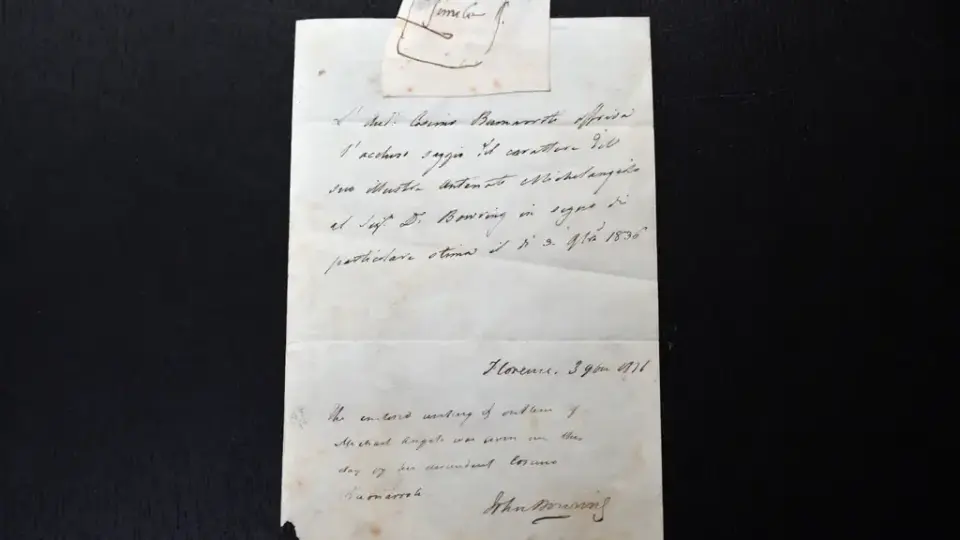 simile
L' Aul: Cosimo Buonarroti offriva
l'accluso saggio del carattere del
suo illustre Antenato Michelangelo
al Sig. D. Bowring in segno di
particolare stima il dì 3 9bre 1836
Florence. 3 9bre 1836
The enclosed writing & outlines of
Michael Angelo was given me this
day by his descendant Cosimo
Buonarroti
John Bowring